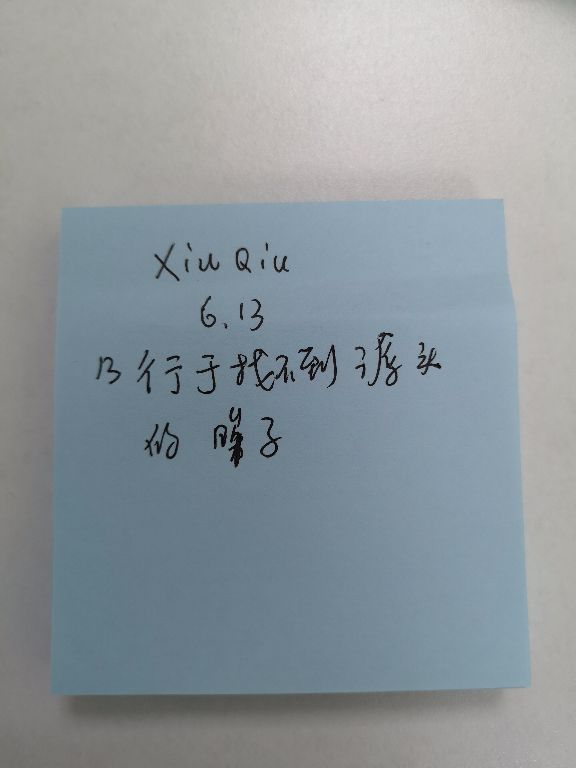 Xiu Qiu
6.13
13 行于找不到头
的 子